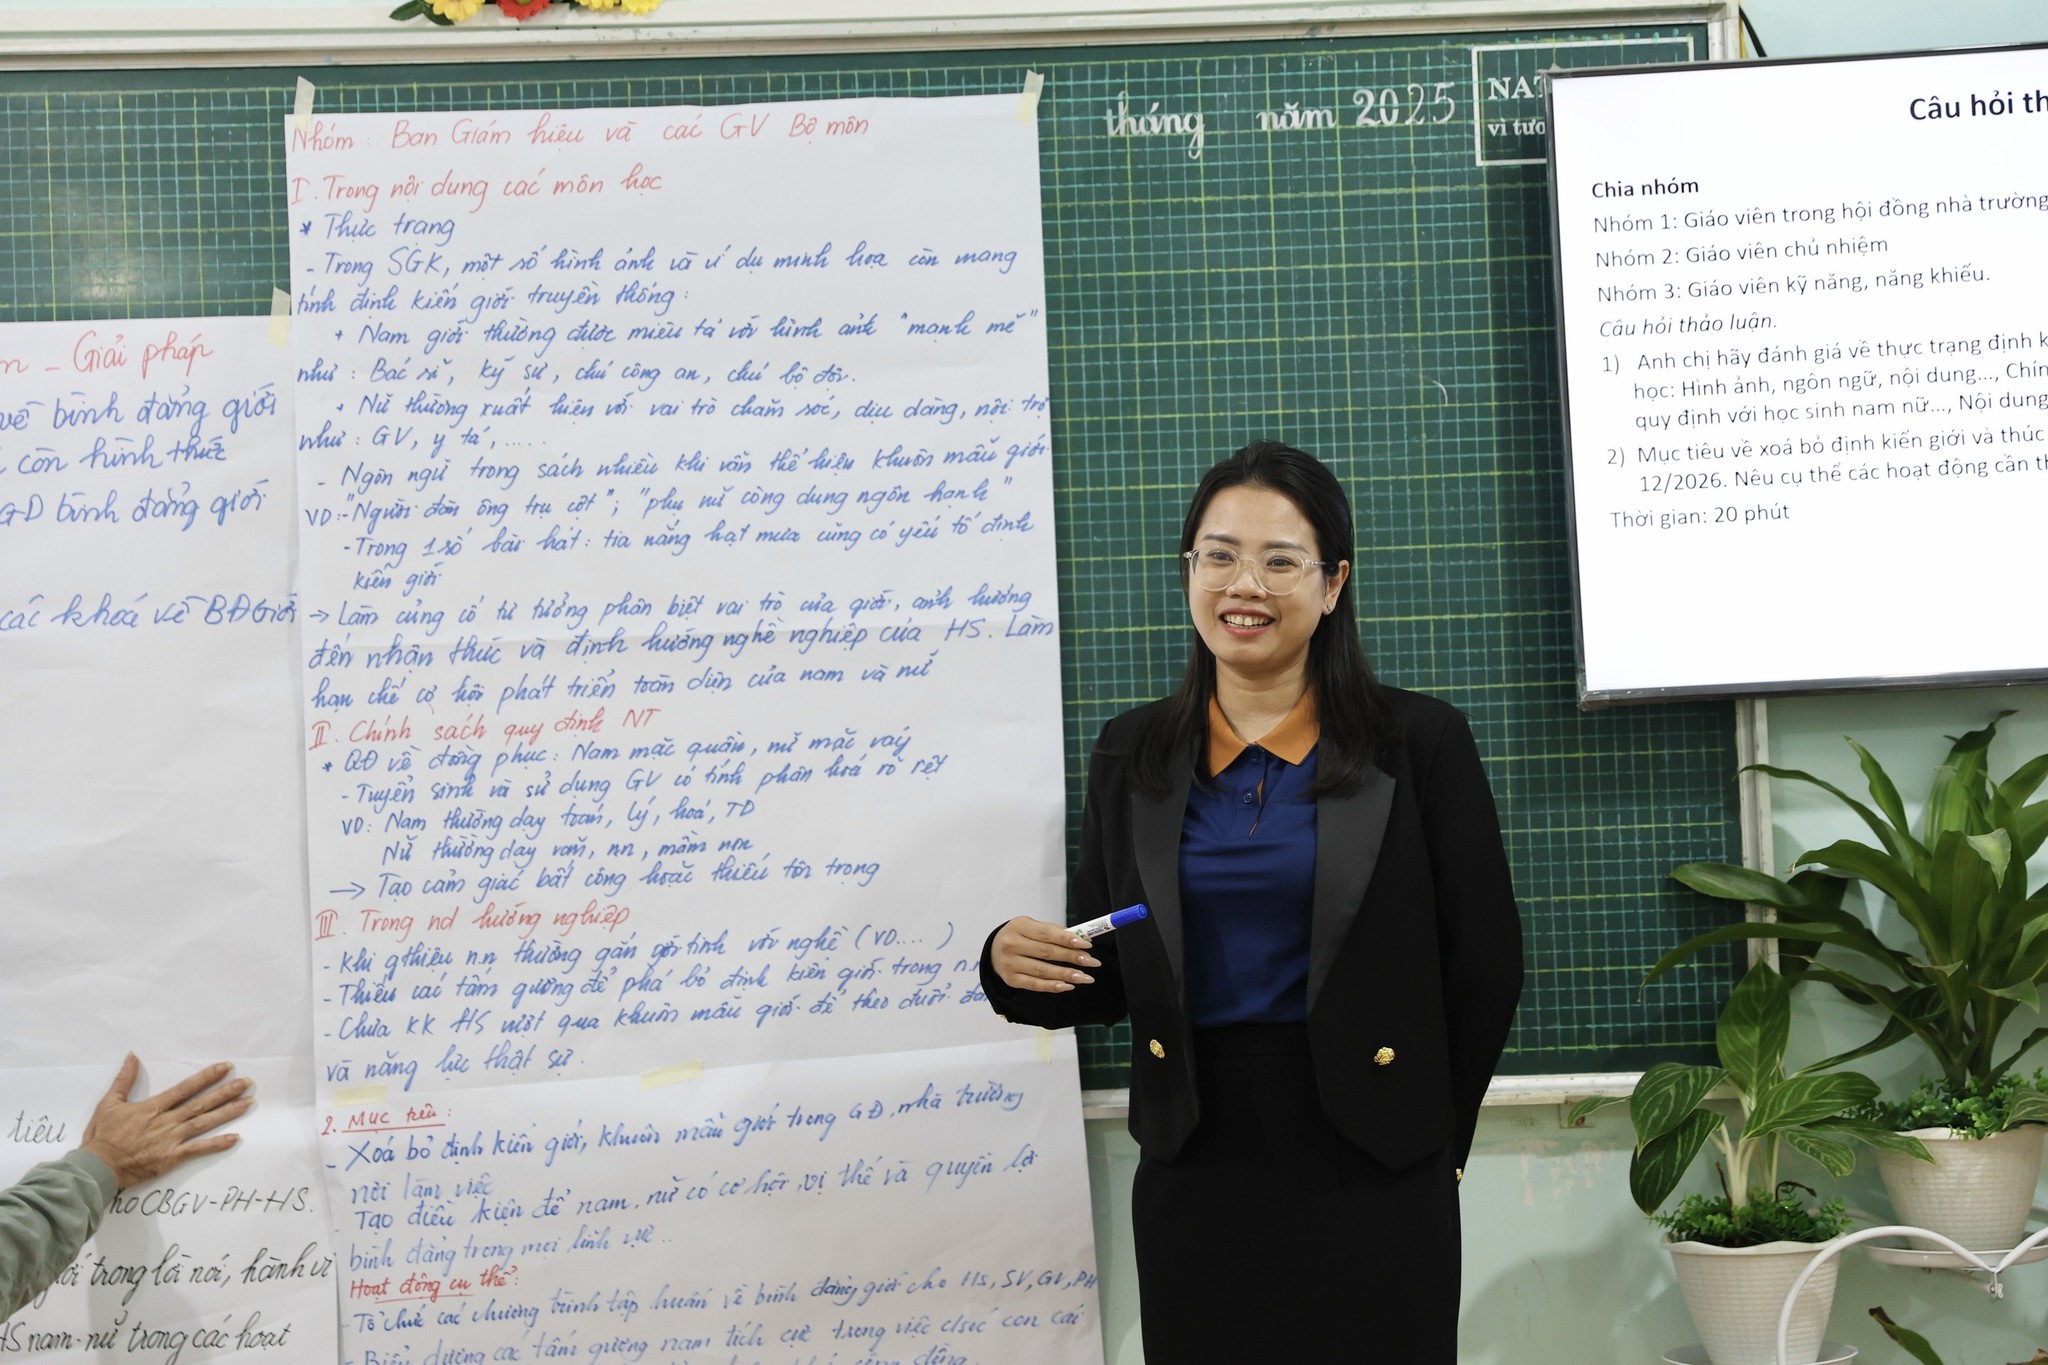 m - Giải pháp
về bình đẳng giới
còn hình thức
GD bình đẳng giới
các khoá về BĐ Giới
tiêu
ho CBGV-PH-HS.
giới trong lời nói, hành vi
HS nam-nữ trong các hoạt
Nhóm: Ban Giám hiệu và các GV Bộ môn
I. Trong nội dung các môn học
* Thực trạng
- Trong SGK, một số hình ảnh và ví dụ minh hoạ còn mang
tính định kiến giới truyền thống:
+ Nam giới thường được miêu tả với hình ảnh "mạnh mẽ"
như: Bác sĩ, kỹ sư, chú công an, chú bộ đội.
+ Nữ thường xuất hiện với vai trò chăm sóc, dịu dàng, nội trợ
như: GV, y tá, .....
- Ngôn ngữ trong sách nhiều khi vẫn thể hiện khuôn mẫu giới
VD:-"Người đàn ông trụ cột"; "phụ nữ công dung ngôn hạnh"
-Trong 1 số bài hát: tia nắng hạt mưa cũng có yếu tố định
kiến giới
→ Làm củng cố tư tưởng phân biệt vai trò của giới, ảnh hưởng
đến nhận thức và định hướng nghề nghiệp của HS. Làm
hạn chế cơ hội phát triển toàn diện của nam và nữ
II. Chính sách quy định NT
* QĐ về đồng phục: Nam mặc quần, nữ mặc váy
- Tuyển sinh và sử dụng GV có tính phân hoá rõ rệt
VD: Nam thường dạy toán, lý, hoá, TD
Nữ thường dạy văn, nn, mầm non
→ Tạo cảm giác bất công hoặc thiếu tôn trọng
III. Trong nd hướng nghiệp
- Khi gthiệu n.n thường gắn giới tính với nghề (VD....)
- Thiếu các tấm gương để phá bỏ định kiến giới trong n.n
- Chưa KK HS vượt qua khuôn mẫu giới để theo đuổi
và năng lực thật sự.
2. Mục tiêu:
- Xoá bỏ định kiến giới, khuôn mẫu giới trong GĐ, nhà trường
nơi làm việc
- Tạo điều kiện để nam, nữ có cơ hội, vị thế và quyền lợi
bình đẳng trong mọi lĩnh vực..
Hoạt động cụ thể:
- Tổ chức các chương trình tập huấn về bình đẳng giới cho HS, SV, GV, PH
- Biểu dương các tấm gương nam tích cực trong việc chsóc con cái
cộng đồng.
tháng năm 2025
NAT
vì tươ
Câu hỏi th
Chia nhóm
Nhóm 1: Giáo viên trong hội đồng nhà trường
Nhóm 2: Giáo viên chủ nhiệm
Nhóm 3: Giáo viên kỹ năng, năng khiếu.
Câu hỏi thảo luận.
1) Anh chị hãy đánh giá về thực trạng định k
học: Hình ảnh, ngôn ngữ, nội dung..., Chín
quy định với học sinh nam nữ..., Nội dung
2) Mục tiêu về xoá bỏ định kiến giới và thúc
12/2026. Nêu cụ thể các hoạt động cần th
Thời gian: 20 phút